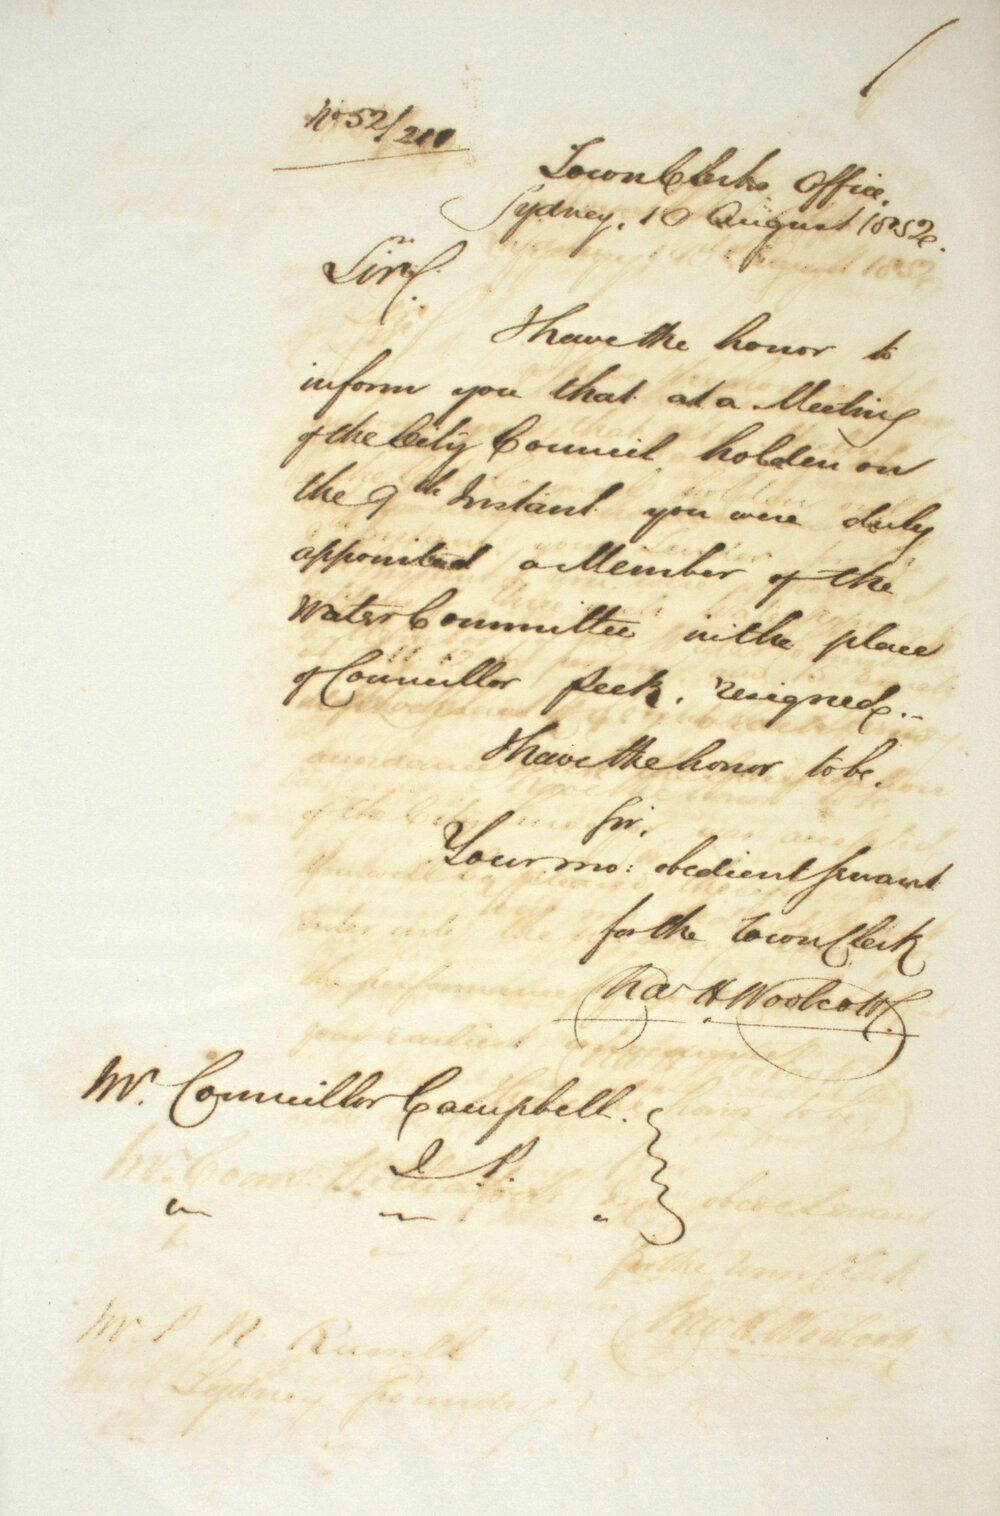 No 52/210
Town Clerks Office,
Sydney, 10 August 1852.
Sir,
I have the honor to
inform you that at a Meeting
of the City Council holden on
the 9th Instant you were duly
appointed a Member of the
Water Committee in the place
of Councillor Peek, resigned.-
I have the honor to be,
Sir,
Your mo: obedient servant
for the Town Clerk
Chas H Woolcott
Mr. Councillor Campbell.
J. P.
" " "
Mr. P N Russell
Sydney Foundry